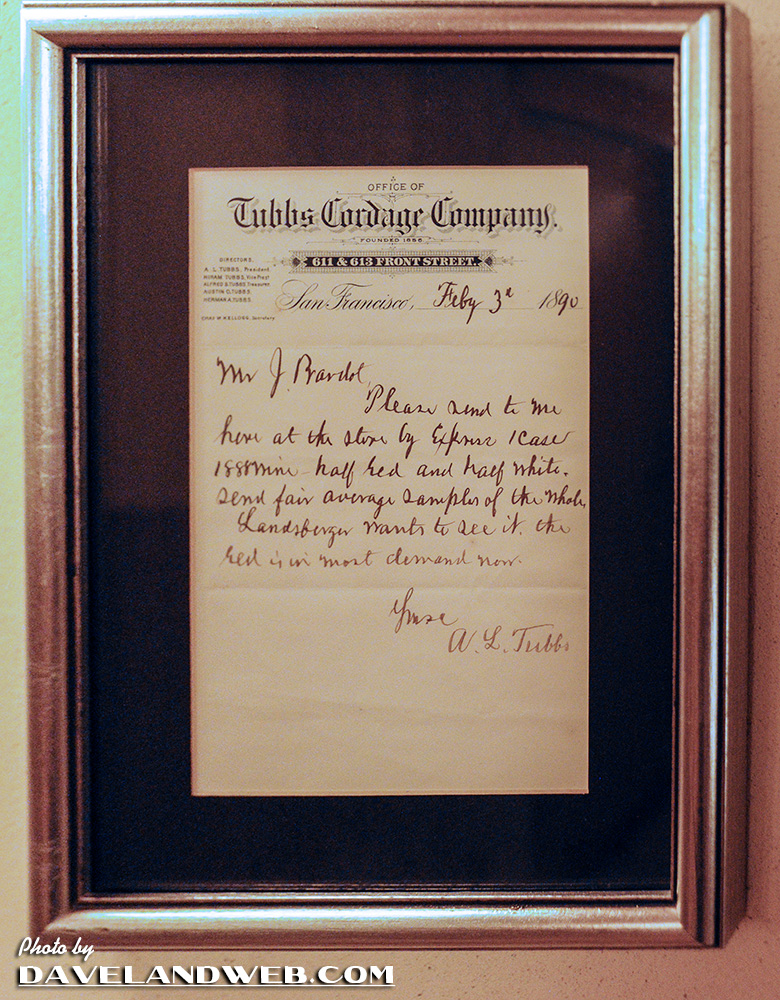 OFFICE OF
Tubbs Cordage Company.
FOUNDED 1856
611 & 613 FRONT STREET.
DIRECTORS.
A. L. TUBBS, President
HIRAM TUBBS, Vice Prest
ALFRED S. TUBBS, Treasurer
AUSTIN C. TUBBS
HERMAN A. TUBBS
CHAS W. KELLOGG, Secretary
San Francisco, Feby 3d 1890
Mr J. Bardot,
Please send to me
here at the store by Express 1 case
1888 wine half red and half white.
send fair average samples of the whole,
Landsberger wants to see it. the
red is in most demand now.
Yours
A. L. Tubbs
Photo by
DAVELANDWEB.COM